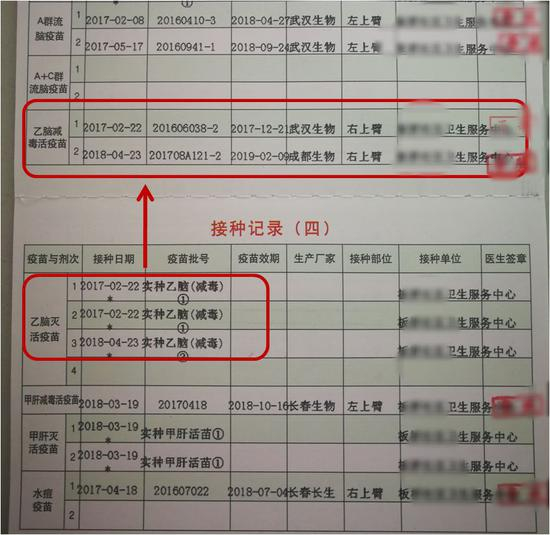 *
A群流脑疫苗 1 2017-02-08 20160410-3 2018-04-27 武汉生物 左上臂 卫生服务
2 2017-05-17 20160941-1 2018-09-24 武汉生物 左上臂 卫生服务
A+C群流脑疫苗 1
2
乙脑减毒活疫苗 1 2017-02-22 201606038-2 2017-12-21 武汉生物 右上臂 卫生服务中心
2 2018-04-23 201708A121-2 2019-02-09 成都生物 右上臂 卫生服务中心
接种记录（四）
疫苗与剂次 接种日期 疫苗批号 疫苗效期 生产厂家 接种部位 接种单位 医生签章
乙脑灭活疫苗 1 2017-02-22 * 实种乙脑(减毒)① 板 卫生服务中心
2 2017-02-22 * 实种乙脑(减毒)① 板 卫生服务中心
3 2018-04-23 * 实种乙脑(减毒)② 板 卫生服务中心
4
甲肝减毒活疫苗 2018-03-19 20170418 2018-10-16 长春生物 左上臂 板 卫生服务
甲肝灭活疫苗 1 2018-03-19 * 实种甲肝活苗① 板 卫生服务中心
2 2018-03-19 * 实种甲肝活苗① 板 卫生服务中心
水痘疫苗 1 2017-04-18 201607022 2018-07-04 长春长生 右上臂 板 卫生服务
2